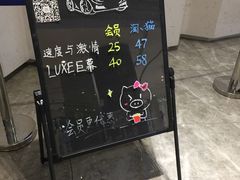 会员 淘、猫
速度与激情 25 47
LUXE巨幕 40 58
会员更优惠